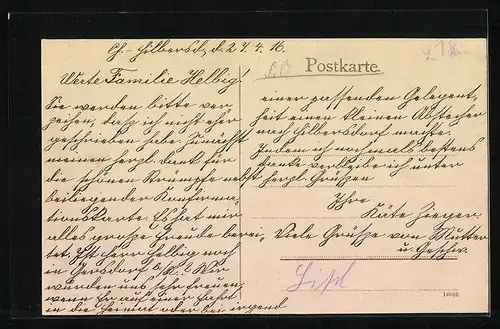 Ch.-Hilbersd., d. 24.4.16.
Postkarte.
Werte Familie Helbig!
Sie werden bitte ver-
zeihen, daß ich nicht eher
geschrieben habe. Zunächst
meinen herzl. Dank für
die schönen Strümpfe nebst
beiliegender Konfirma-
tionskarte. Es hat mir
alles große Freude berei-
tet. Ist Herr Helbig noch
in Gersdorf Wir
würden uns sehr freuen,
wenn Er auf einer Fahrt
in die Heimat oder bei irgend
einer passenden Gelegen-
heit einen kleinen Abstecher
nach Hilbersdorf machte.
Indem ich nochmals bestens
danke verbleibe ich unter
herzl. Grüßen
Ihre
Käte Zieger.
Viele Grüße von Mutter
u. Geschw.
14088